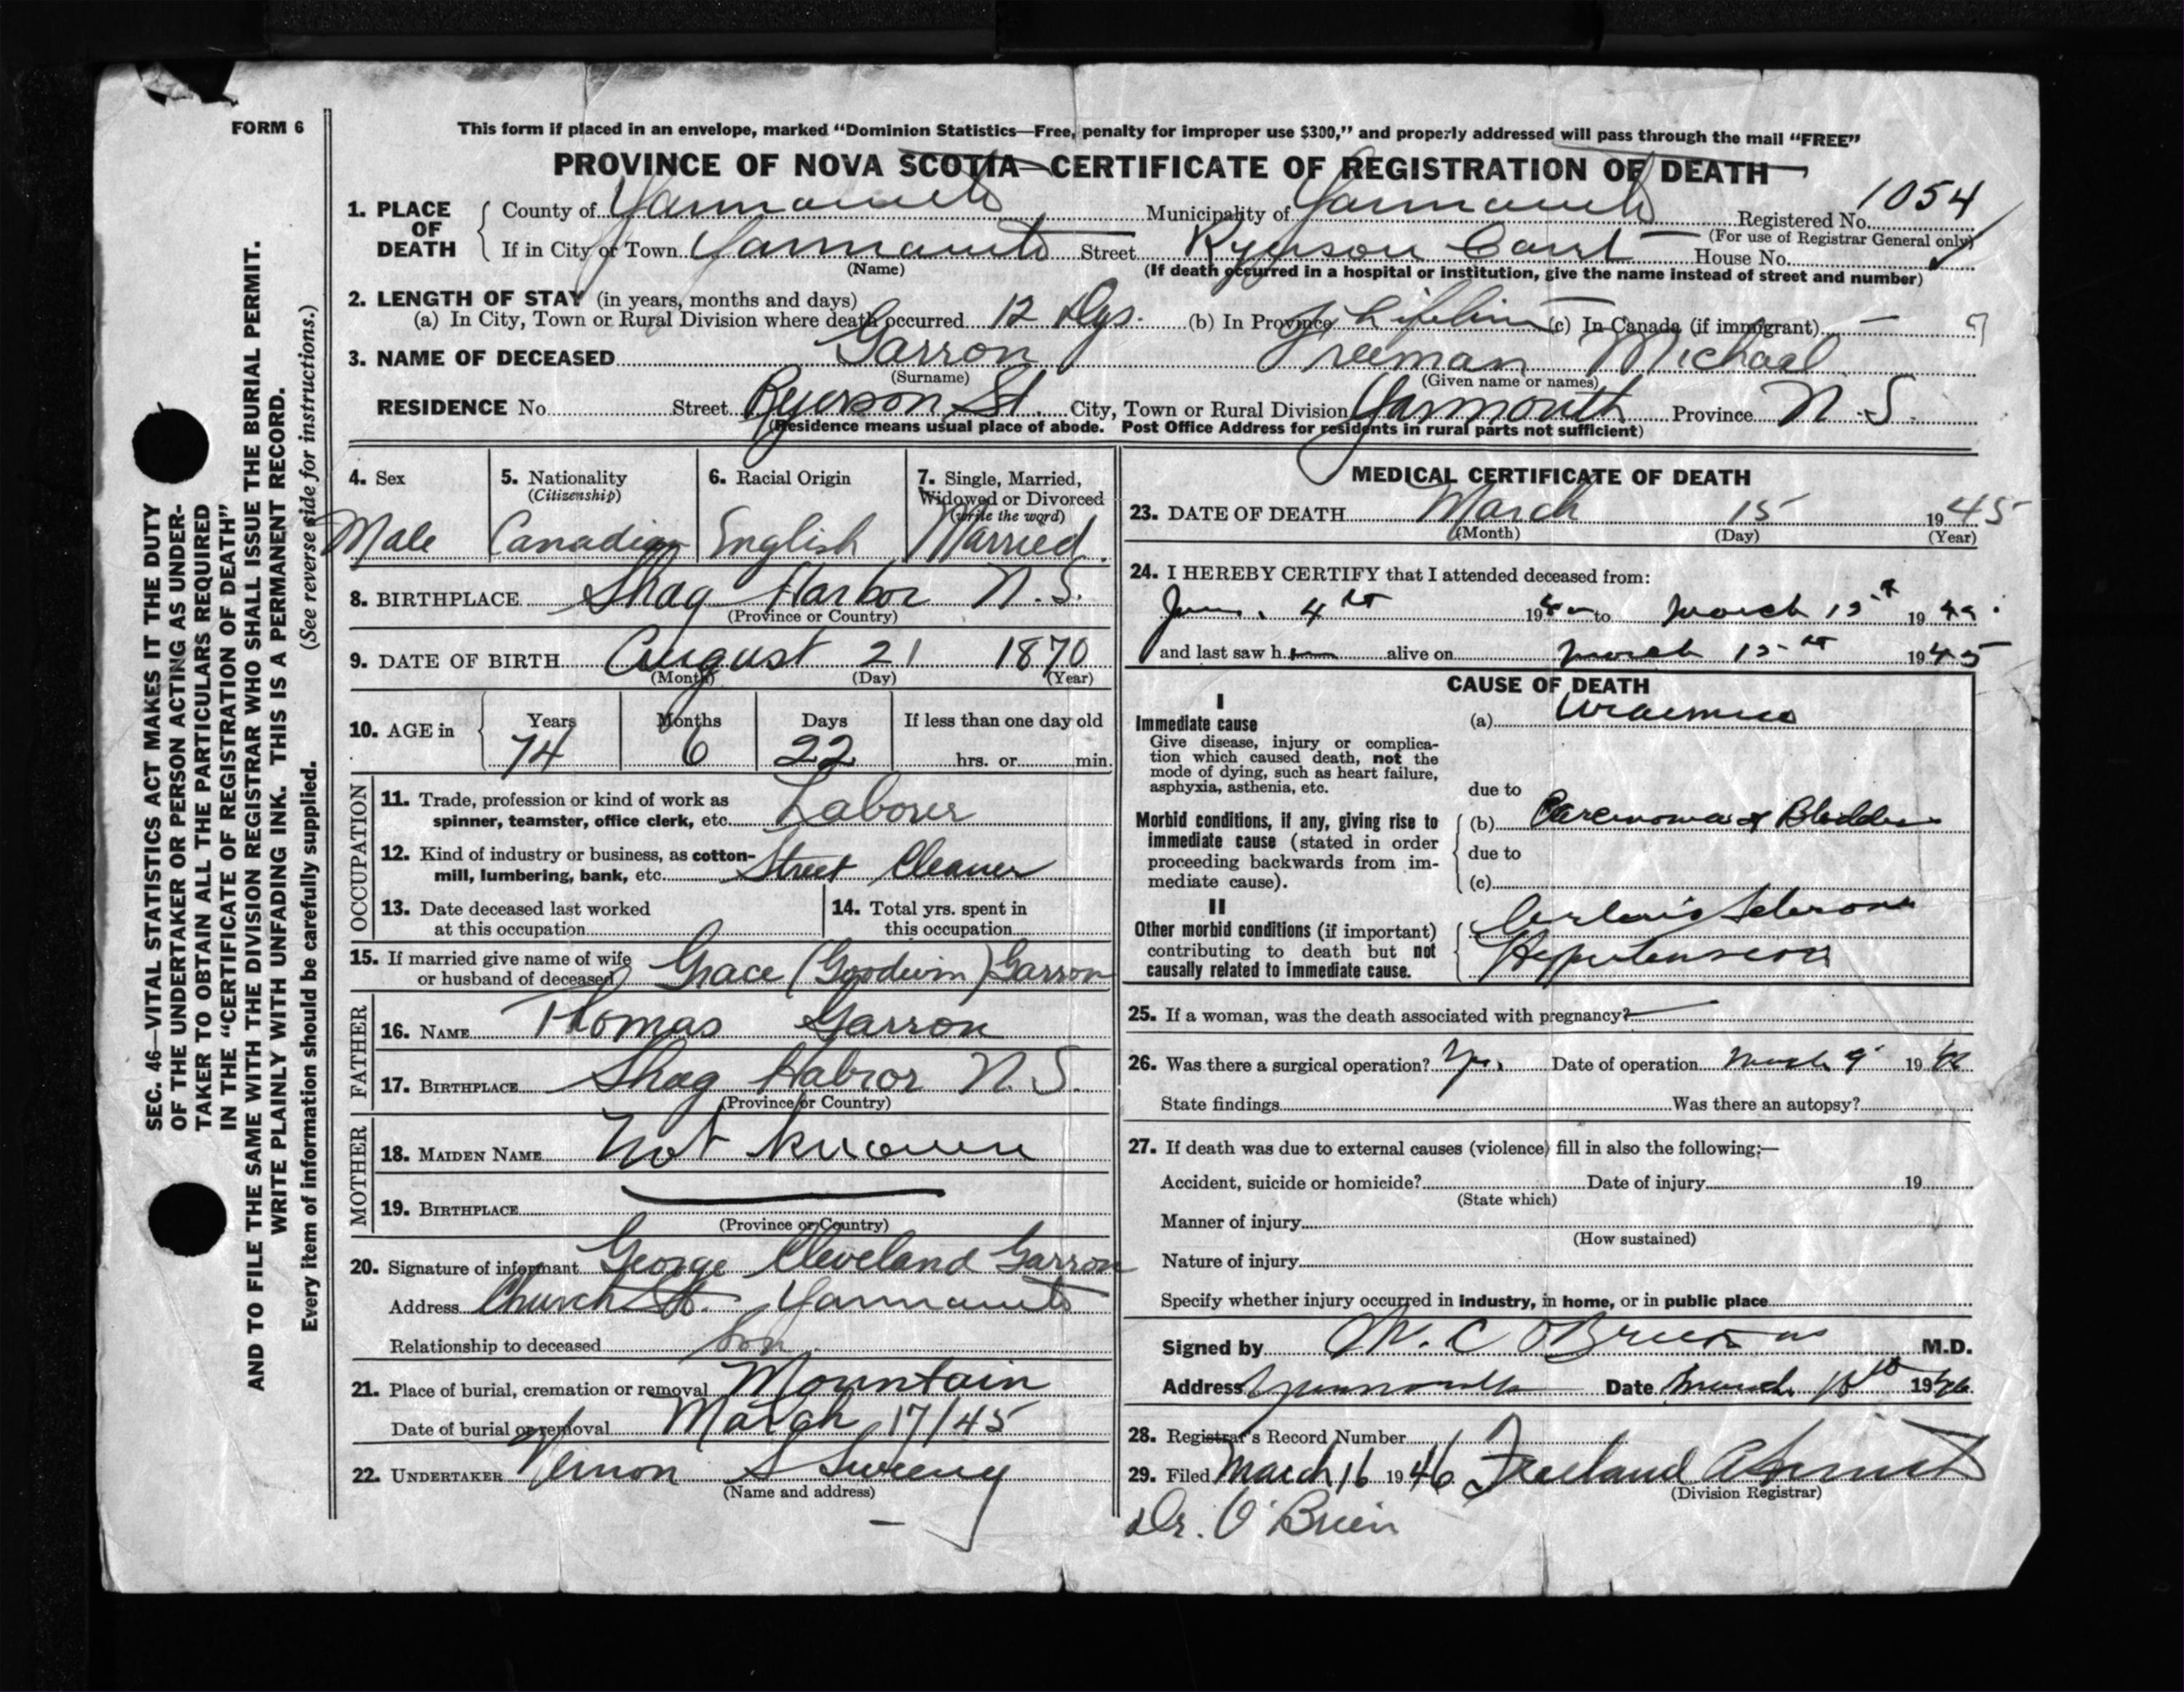 FORM 6
This form if placed in an envelope, marked “Dominion Statistics—Free, penalty for improper use $300,” and properly addressed will pass through the mail “FREE”
PROVINCE OF NOVA SCOTIA—CERTIFICATE OF REGISTRATION OF DEATH
1. PLACE OF DEATH County of Yarmouth Municipality of Yarmouth Registered No. 1054
(For use of Registrar General only)
If in City or Town Yarmouth Street Ryerson Court House No.
(Name) (If death occurred in a hospital or institution, give the name instead of street and number)
2. LENGTH OF STAY (in years, months and days)
(a) In City, Town or Rural Division where death occurred 12 Dys. (b) In Province Lifetime (c) In Canada (if immigrant) —
3. NAME OF DECEASED Garron Freeman Michael
(Surname) (Given name or names)
RESIDENCE No. Street Ryerson St. City, Town or Rural Division Yarmouth Province N.S.
(Residence means usual place of abode. Post Office Address for residents in rural parts not sufficient)
4. Sex Male
5. Nationality (Citizenship) Canadian
6. Racial Origin English
7. Single, Married, Widowed or Divorced (write the word) Married
8. BIRTHPLACE Shag Harbor N.S.
(Province or Country)
9. DATE OF BIRTH August 21 1870
(Month) (Day) (Year)
10. AGE in Years Months Days If less than one day old
74 6 22 hrs. or min.
OCCUPATION
11. Trade, profession or kind of work as spinner, teamster, office clerk, etc. Laborer
12. Kind of industry or business, as cotton-mill, lumbering, bank, etc. Street Cleaner
13. Date deceased last worked at this occupation
14. Total yrs. spent in this occupation
15. If married give name of wife or husband of deceased Grace (Goodwin) Garron
FATHER
16. NAME Thomas Garron
17. BIRTHPLACE Shag Habror N.S.
(Province or Country)
MOTHER
18. MAIDEN NAME Not known
19. BIRTHPLACE
(Province or Country)
20. Signature of informant George Cleveland Garron
Address Church St. Yarmouth
Relationship to deceased Son
21. Place of burial, cremation or removal Mountain
Date of burial or removal March 17/45
22. UNDERTAKER Vernon S Sweeny
(Name and address)
MEDICAL CERTIFICATE OF DEATH
23. DATE OF DEATH March 15 1945
(Month) (Day) (Year)
24. I HEREBY CERTIFY that I attended deceased from:
4th 19 to March 15th 19
and last saw h alive on March 15th 1945
CAUSE OF DEATH
I
Immediate cause (a) Uraemia
Give disease, injury or complication which caused death, not the mode of dying, such as heart failure, asphyxia, asthenia, etc.
due to
Morbid conditions, if any, giving rise to immediate cause (stated in order proceeding backwards from immediate cause).
(b) Carcinoma of Bladder
due to
(c)
II
Other morbid conditions (if important) contributing to death but not causally related to immediate cause.
Sclerosis
Hypertension
25. If a woman, was the death associated with pregnancy? —
26. Was there a surgical operation? Yes. Date of operation March 9 19
State findings Was there an autopsy?
27. If death was due to external causes (violence) fill in also the following:—
Accident, suicide or homicide? Date of injury 19
(State which)
Manner of injury
(How sustained)
Nature of injury
Specify whether injury occurred in industry, in home, or in public place
Signed by W. C O'Brien M.D.
Address Yarmouth Date March 19
28. Registrar's Record Number
29. Filed March 16 1946 Freeland
(Division Registrar)
Dr. O'Brien
SEC. 46—VITAL STATISTICS ACT MAKES IT THE DUTY
OF THE UNDERTAKER OR PERSON ACTING AS UNDER-
TAKER TO OBTAIN ALL THE PARTICULARS REQUIRED
IN THE “CERTIFICATE OF REGISTRATION OF DEATH”
AND TO FILE THE SAME WITH THE DIVISION REGISTRAR WHO SHALL ISSUE THE BURIAL PERMIT.
WRITE PLAINLY WITH UNFADING INK. THIS IS A PERMANENT RECORD.
Every item of information should be carefully supplied. (See reverse side for instructions.)